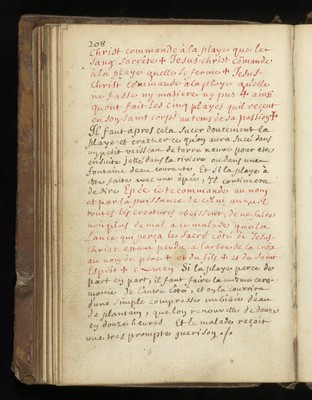 208
Christ commande a la playe que le
sang s'arrete + Jesus-christ comande
a la playe quelle se ferme + Jesus-
Christ commande a la playe qu'elle
ne fasse ny matiere ny pus + ainsi
qu'ont fait les cinq playes qu'il reçeut
en son saint corps au tems de sa passion +
Il faut apres cela sucer doucement la
playe et cracher ce qu'on aura sucé dans
un petit vaisseau de terre neuve pour etre
ensuite jetté dans la riviere ou dans une
fontaine d'eau courante. Et si la playe a
eté faite avec une épée, il continuera
de dire Epée je te commande au nom
et par la puissance de celui auquel
toutes les creatures obeissent, de ne faire
non plus de mal a ce malade que la
lance qui perca le sacré côté de Jesus
Christ etant pendu a l'arbre de la croix
au nom du pere + et du fils + et du saint
Esprit + amen Si la playe perce de
part en part, il faut faire la meme cere-
monie, de l'autre côté, et on la couvrira
d'une simple compresse imbibée d'eau
de plantain, que l'on renouvelle de douze
en douze heures. Et le malade reçoit
une tres prompte guerison.